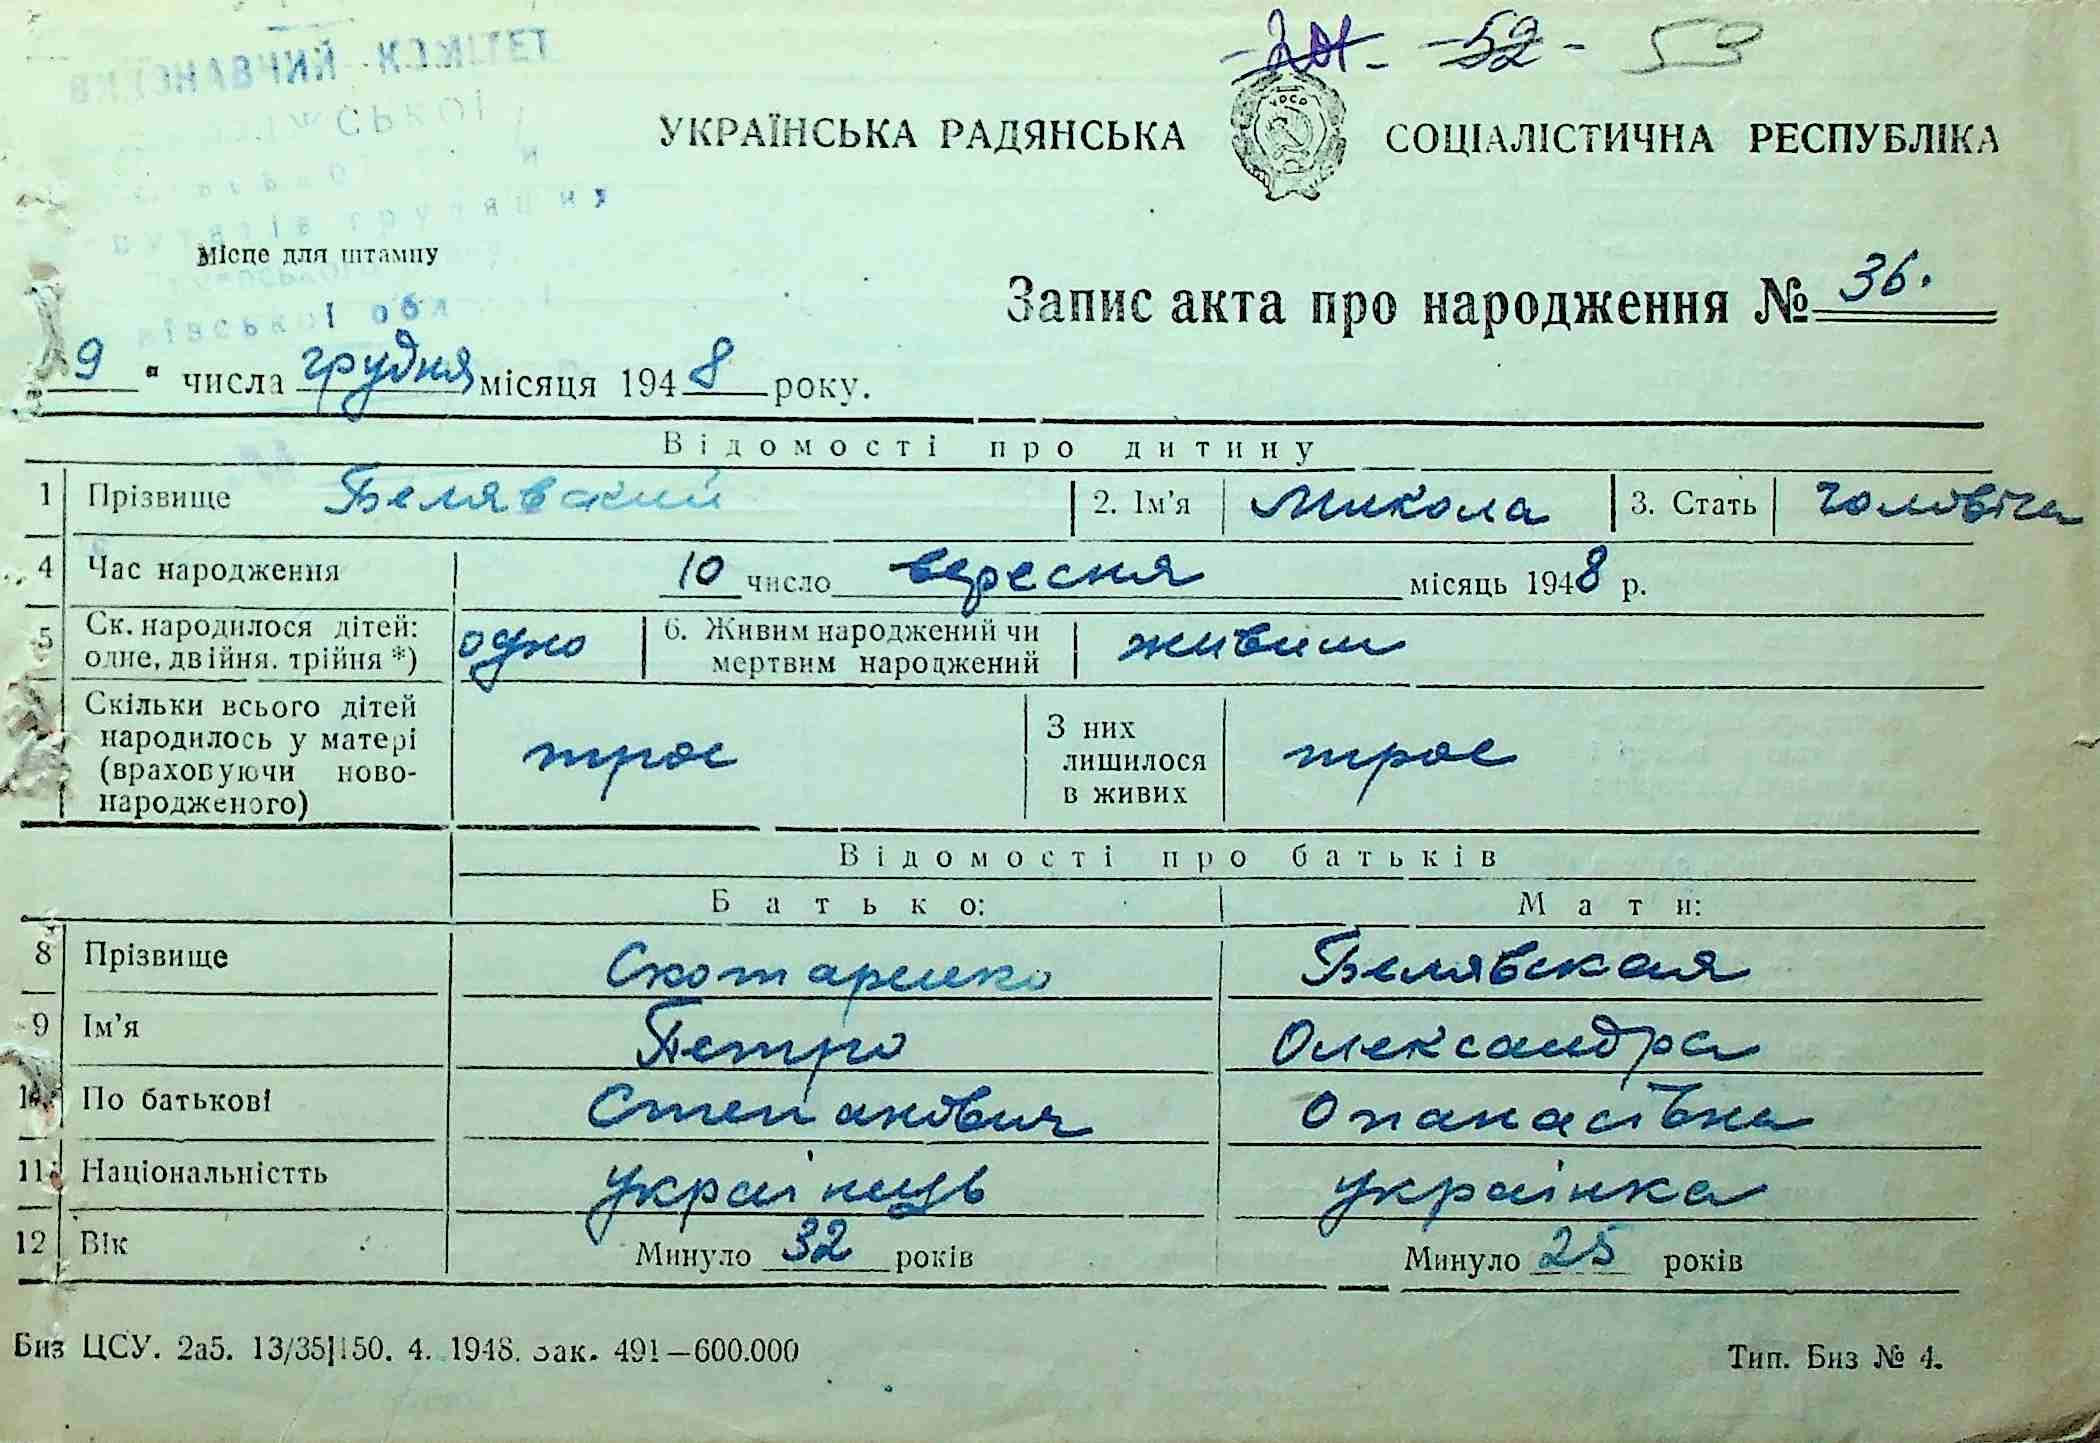 -52- 53
ВИКОНАВЧИЙ КОМІТЕТ
УКРАЇНСЬКА РАДЯНСЬКА СОЦІАЛІСТИЧНА РЕСПУБЛІКА
УРСР
Місце для штампу
Запис акта про народження № 36.
9 " числа грудня місяця 1948 року.
Відомості про дитину
1 Прізвище Белявский 2. Ім'я Микола 3. Стать чоловіча
4 Час народження 10 число вересня місяць 1948 р.
5 Ск. народилося дітей: одне, двійня. трійня *) одно 6. Живим народжений чи мертвим народжений живим
Скільки всього дітей народилось у матері (враховуючи новонародженого) троє З них лишилося в живих троє
Відомості про батьків
Батько: Мати:
8 Прізвище Скотаренко Белявская
9 Ім'я Петро Олександра
10 По батькові Степанович Опанасівна
11 Національністть українець українка
12 Вік Минуло 32 років Минуло 25 років
Биз ЦСУ. 2а5. 13/35|150. 4. 1948. Зак. 491—600.000 Тип. Биз № 4.